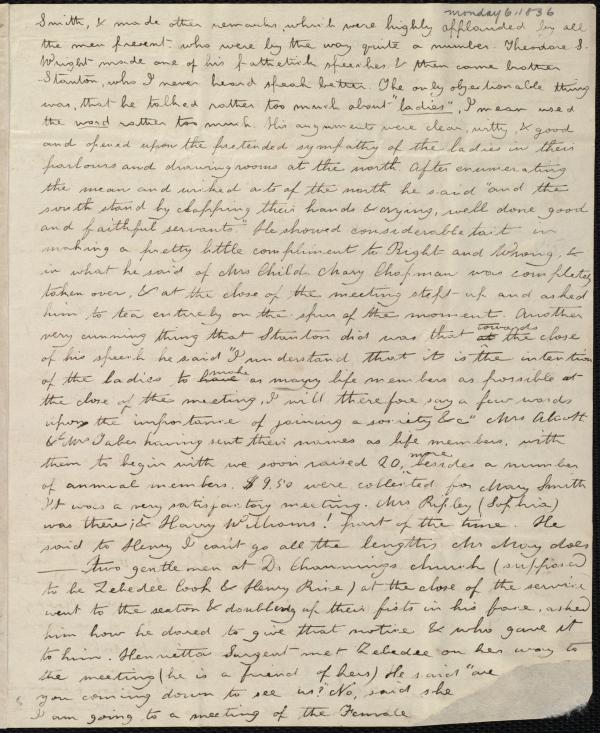 monday 6. 1836
Smith, & made other remarks, which were highly applauded by all
the men present who were by the way quite a number. Theodore S.
Wright made one of his pathetick speeches. & then came brother
Stanton, who I never heard speak better. The only objectionable thing
was, that he talked rather too much about "ladies", I mean used
the word rather too much. His arguments were clear, witty, & good
and opened upon the pretended sympathy of the ladies in their
parlours and drawing rooms at the north. After enumerating
the mean and wicked acts of the north he said "and the
south stand by clapping their hands & crying, well done good
and faithful servants." He showed considerable tact in
making a pretty little compliment to Right and Wrong, &
in what he said of Mrs Child. Mary Chapman was completely
taken over, & at the close of the meeting stept up and asked
him to tea entirely on the spur of the moment. Another
very cunning thing that Stanton did was that towards
at the close
of his speech he said "I understand that it is the intention
of the ladies to have make as many life members as possible at
the close of the meeting, I will therefore say a few words
upon the importance of joining a society &c" Mrs Alcott
& Mrs Taber having sent their names as life members, with
them to begin with we soon raised 20, more
besides a number
of annual members. $9.50 were collected for Mary Smith
It was a very satisfactory meeting. Mrs Ripley (Sophia)
was there; & Harry Williams! part of the time. He
said to Henry I can't go all the lengths Mr May does
— two gentlemen at Dr Channings church (supposed
to be Zebedee Cook & Henry Rice) at the close of the service
went to the sexton & doubling up their fists in his face, asked
him how he dared to give that notice & who gave it
to him. Henrietta Sargent met Zebedee on her way to
the meeting (he is a friend of hers) He said "are
you coming down to see us? No, said she
I am going to a meeting of the Female